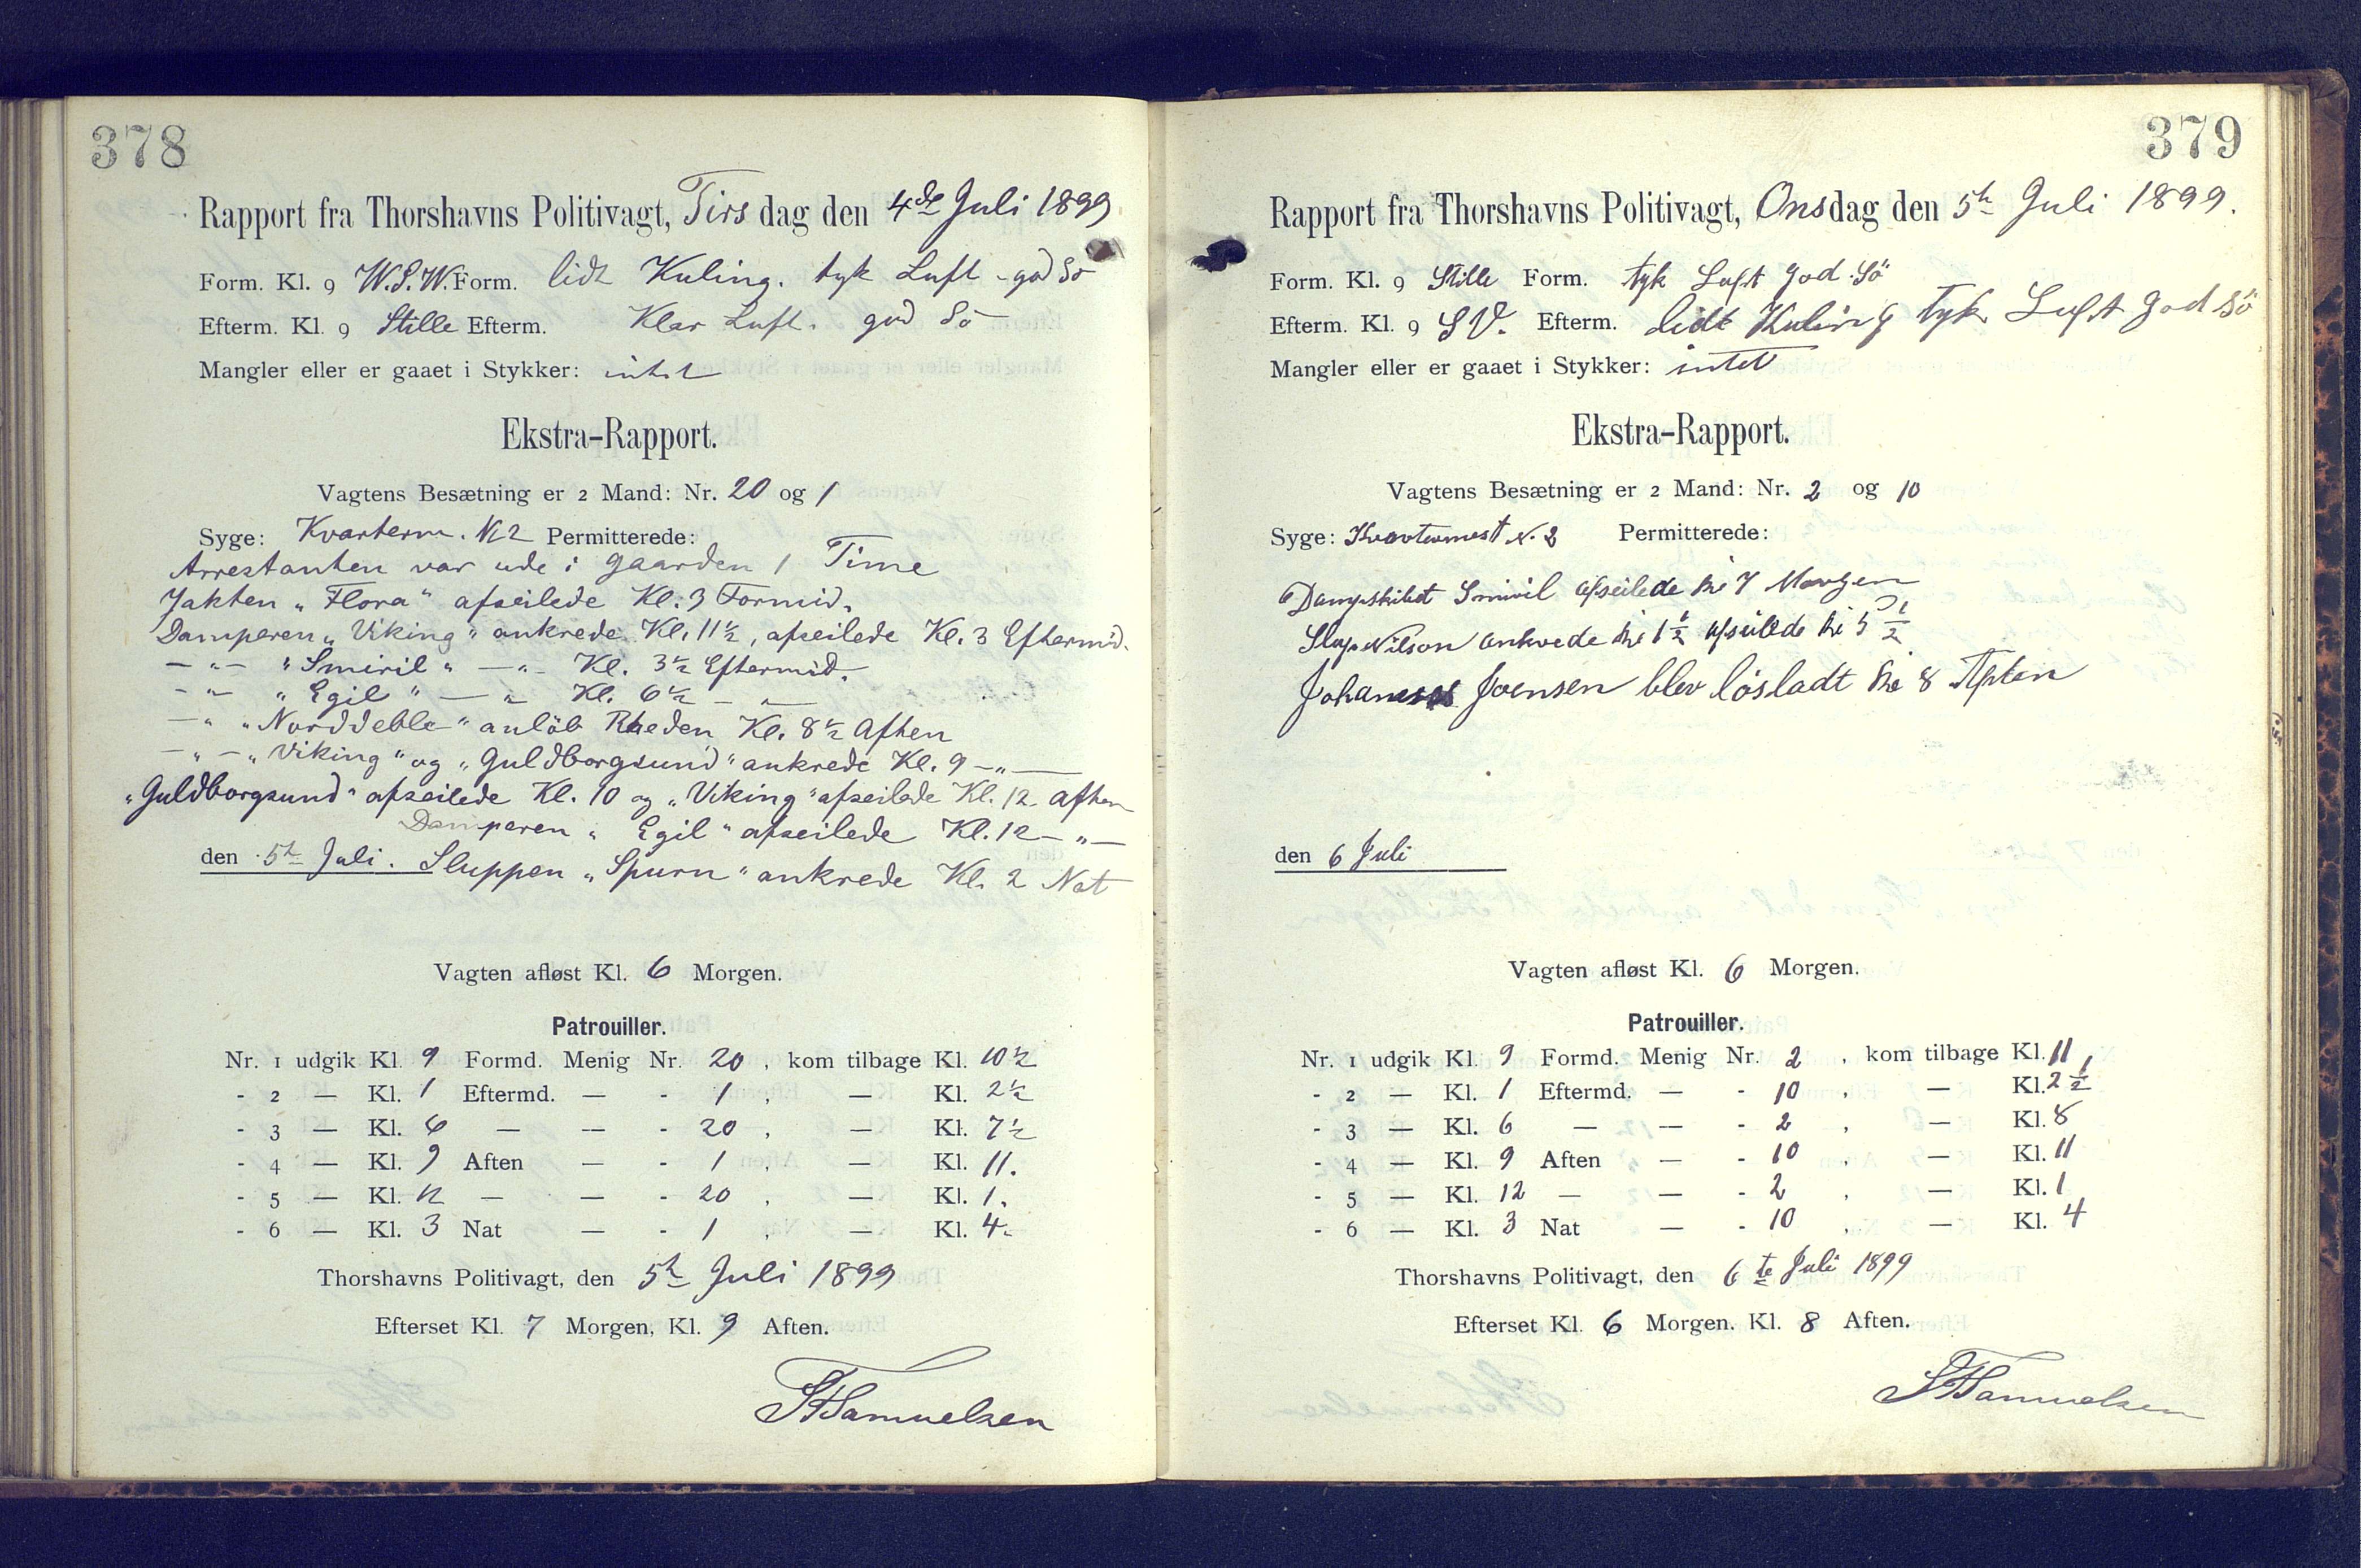 378
Rapport fra Thorshavns Politivagt, Tirsdag den 4de Juli 1899
Form. Kl. 9 W.S.W. Form. lidt Kuling. tyk Luft - god Sö
Efterm. Kl. 9 Stille Efterm. Klar Luft. god Sö
Mangler eller er gaaet i Stykker: intet
Ekstra-Rapport.
Vagtens Besætning er 2 Mand: Nr. 20 og 1
Syge: Kvarterm. N. 2 Permitterede:
Arrestanten var ude i Gaarden 1 Time
Jakten „Flora" afseilede Kl. 3 Formid.
Damperen „Viking" ankrede Kl. 11½, afseilede Kl. 3 Eftermid.
— „ — „Smiril" — „ — Kl. 3½ Eftermid.
— „ — „Egil" — „ Kl. 6½ — „ —
— „ „Norddeble" anlöb Rheden Kl. 8½ Aften
— „ — „Viking" og „Guldborgsund" ankrede Kl. 9 — „ —
„Guldborgsund" afseilede Kl. 10 og „Viking" afseilede Kl. 12 Aften
Damperen „Egil" afseilede Kl. 12 — „ —
den 5te Juli. Sluppen „Spurn" ankrede Kl. 2 Nat
Vagten afløst Kl. 6 Morgen.
Patrouiller.
Nr. 1 udgik Kl. 9 Formd. Menig Nr. 20, kom tilbage Kl. 10½
- 2 — Kl. 1 Eftermd. — - 1, — Kl. 2½
- 3 — Kl. 6 — — - 20, — Kl. 7½
- 4 — Kl. 9 Aften — - 1, — Kl. 11.
- 5 — Kl. 12 — — - 20, — Kl. 1.
- 6 — Kl. 3 Nat — - 1, — Kl. 4.
Thorshavns Politivagt, den 5te Juli 1899
Efterset Kl. 7 Morgen, Kl. 9 Aften.
Samuelsen
379
Rapport fra Thorshavns Politivagt, Onsdag den 5te Juli 1899.
Form. Kl. 9 Stille Form. tyk Luft god Sö
Efterm. Kl. 9 SV. Efterm. lidt Kuling tyk Luft god sö
Mangler eller er gaaet i Stykker: intet
Ekstra-Rapport.
Vagtens Besætning er 2 Mand: Nr. 2 og 10
Syge: Kvartermest N. 2 Permitterede:
Dampskibet Smiril afseilede Kl 7 Morgen
Slup Nilson ankrede Kl 1½ afseilede Kl 5½
Johannes Joensen blev lösladt Kl 8 Aften
den 6 Juli
Vagten afløst Kl. 6 Morgen.
Patrouiller.
Nr. 1 udgik Kl. 9 Formd. Menig Nr. 2, kom tilbage Kl. 11
- 2 — Kl. 1 Eftermd. — - 10, — Kl. 2½
- 3 — Kl. 6 — — - 2, — Kl. 8
- 4 — Kl. 9 Aften — - 10, — Kl. 11
- 5 — Kl. 12 — — - 2, — Kl. 1
- 6 — Kl. 3 Nat — - 10, — Kl. 4
Thorshavns Politivagt, den 6te Juli 1899
Efterset Kl. 6 Morgen. Kl. 8 Aften.
Samuelsen